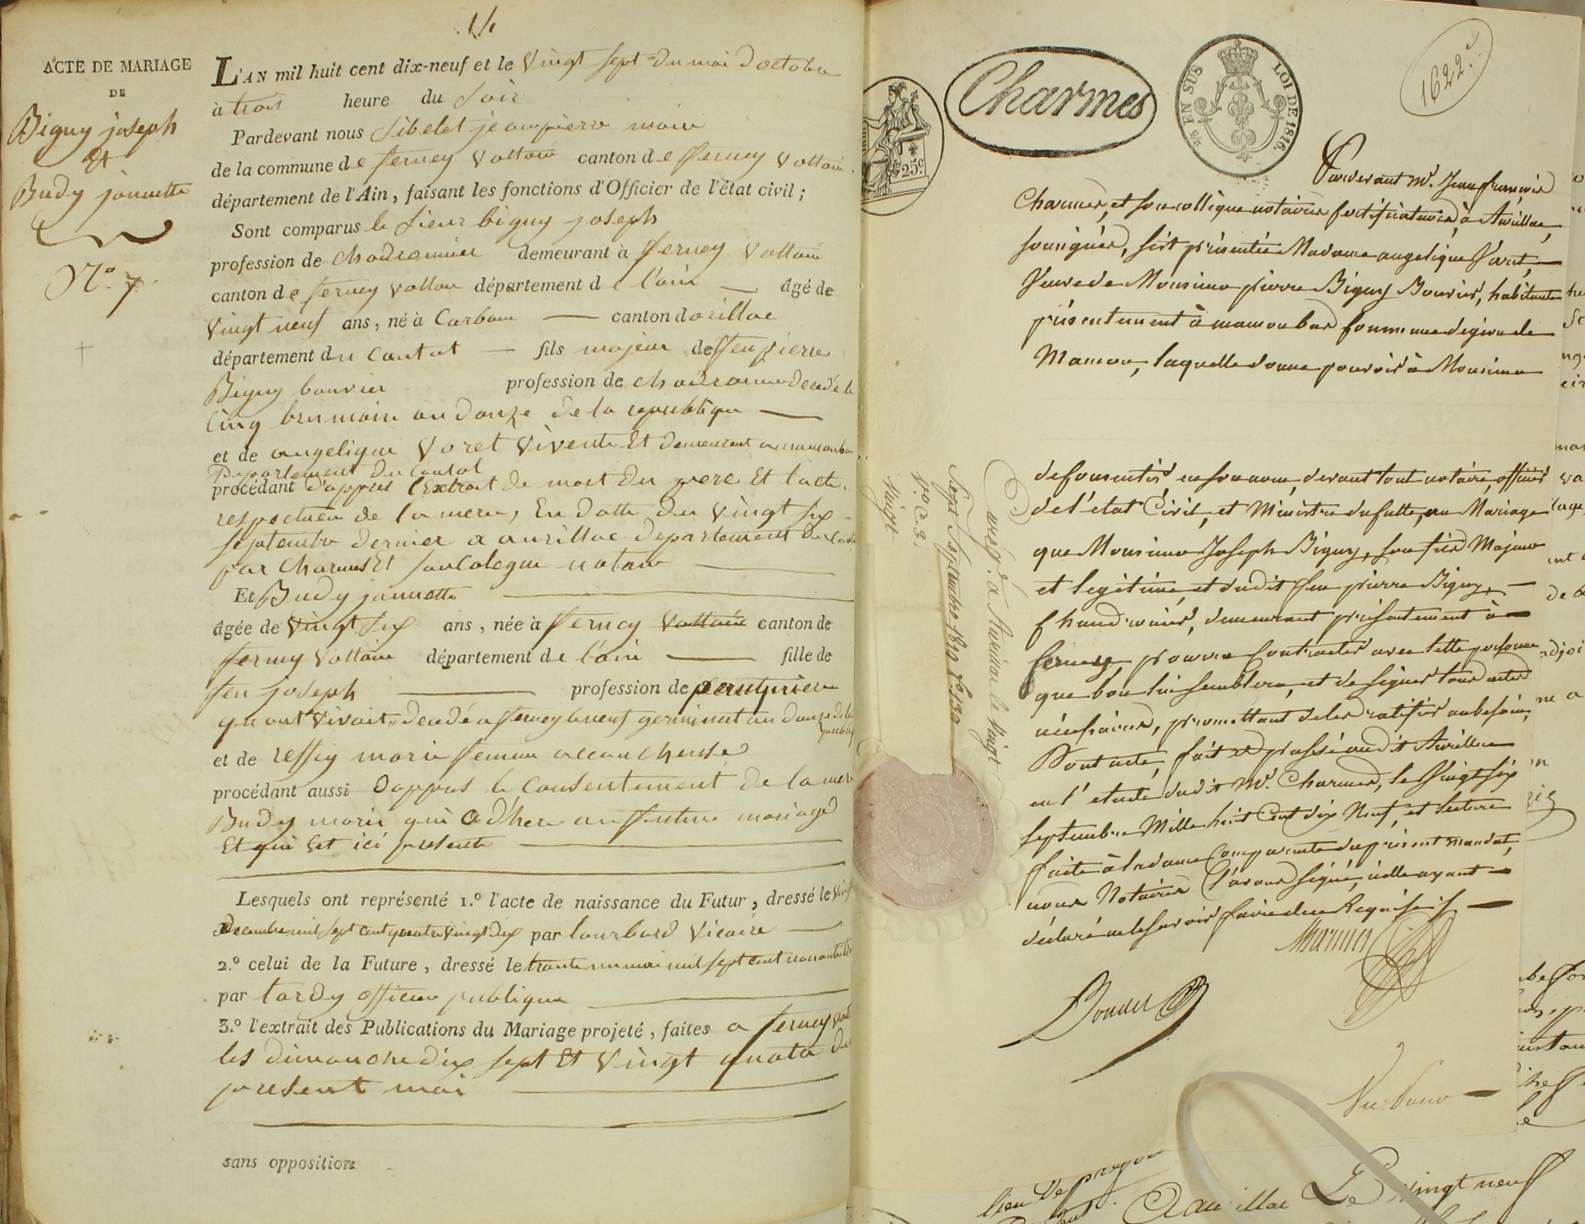 14
ACTE DE MARIAGE
DE
Biguy joseph
Et
Budy jannette
N.o 7
L'AN mil huit cent dix-neuf et le vingt sept du moi doctobre
à trois heure du soir
Pardevant nous Sibelet jeanpierre maire
de la commune de ferney voltaire canton de ferney voltaire
département de l'Ain, faisant les fonctions d'Officier de l'état civil;
Sont comparus le sieur biguy joseph
profession de chodronnier demeurant à ferney voltaire
canton de ferney voltaire département de l'ain âgé de
vingt neuf ans, né à Carbonn canton dorillac
département du cantal fils majeur de feu pierre
Biguy bouvier profession de chodronnier decedé le
cinq brumaire an douze de la republique
et de angelique voret vivente Et demeurant a mamoubar
Departement du Cantal
procédant d'appres l'Extrait de mort du pere Et l'acte
respectueu de la mere, En datte du vingt six
septembre dernier a aurillac departement du Cantal
par Charmes Et son Colegue notaire
Et Budy jannette
âgée de vingt six ans, née à ferney voltaire canton de
ferney voltaire département de l'ain fille de
feu joseph profession de
quant vivait, decedé a ferney le neuf germinal an douze de la republique
et de ressig marie femme accoucheuse
procédant aussi dappres le consentement de la mere
Budy marie qui adhere au futur mariage
Et qui Est ici presente
Lesquels ont représenté 1.o l'acte de naissance du Futur, dressé le vingt
Decembre mil sept cent quatre vingt dix par Lourbard vicaire
2.o celui de la Future, dressé le trente un mai mil sept cent nonante trois
par tardy officier publique
3.o l'extrait des Publications du Mariage projeté, faites a ferney voltaire
les dimanche dix sept Et vingt quatre du
present moi
sans opposition
25c
Charmes
EN SUS LOI DE 1816.
1622.e
Pardevant M.e Jean françois
Charmes, et son collègue notaires certificateurs, à Aurillac,
soussignés, s'est présentée Madame angelique Voret,
Veuve de Monsieur pierre Biguy Bouvier, habitante
présentement à mamoubar commune de giou de
Mamou, laquelle donne pouvoir à Monsieur
de consentir en son nom, devant tout notaire, officier
de l'état Civil, et Ministre du culte, au Mariage
que Monsieur Joseph Biguy, son fils Majeur
et légitime, et dudit feu pierre Biguy,
Chaudronnier, demeurant présentement à
ferney, pourra Contracter avec telle personne
que bon lui semblera, et de signer tous actes
nécessaires, promettant de les ratifier au besoin,
Dont acte, fait et passé audit Aurillac
en l'étude dudit M.e Charmes, le Vingt six
Septembre Mille huit Cent dix Neuf, et lecture
faite à la dame Comparante du présent mandat,
nous Notaires l'avons signé, icelle ayant
déclaré ne le savoir faire de ce Requise
Charmes
vingt
Sept Septembre 1819
Enreg.é à Aurillac le vingt
lieu
Aurillac Le vingt neuf